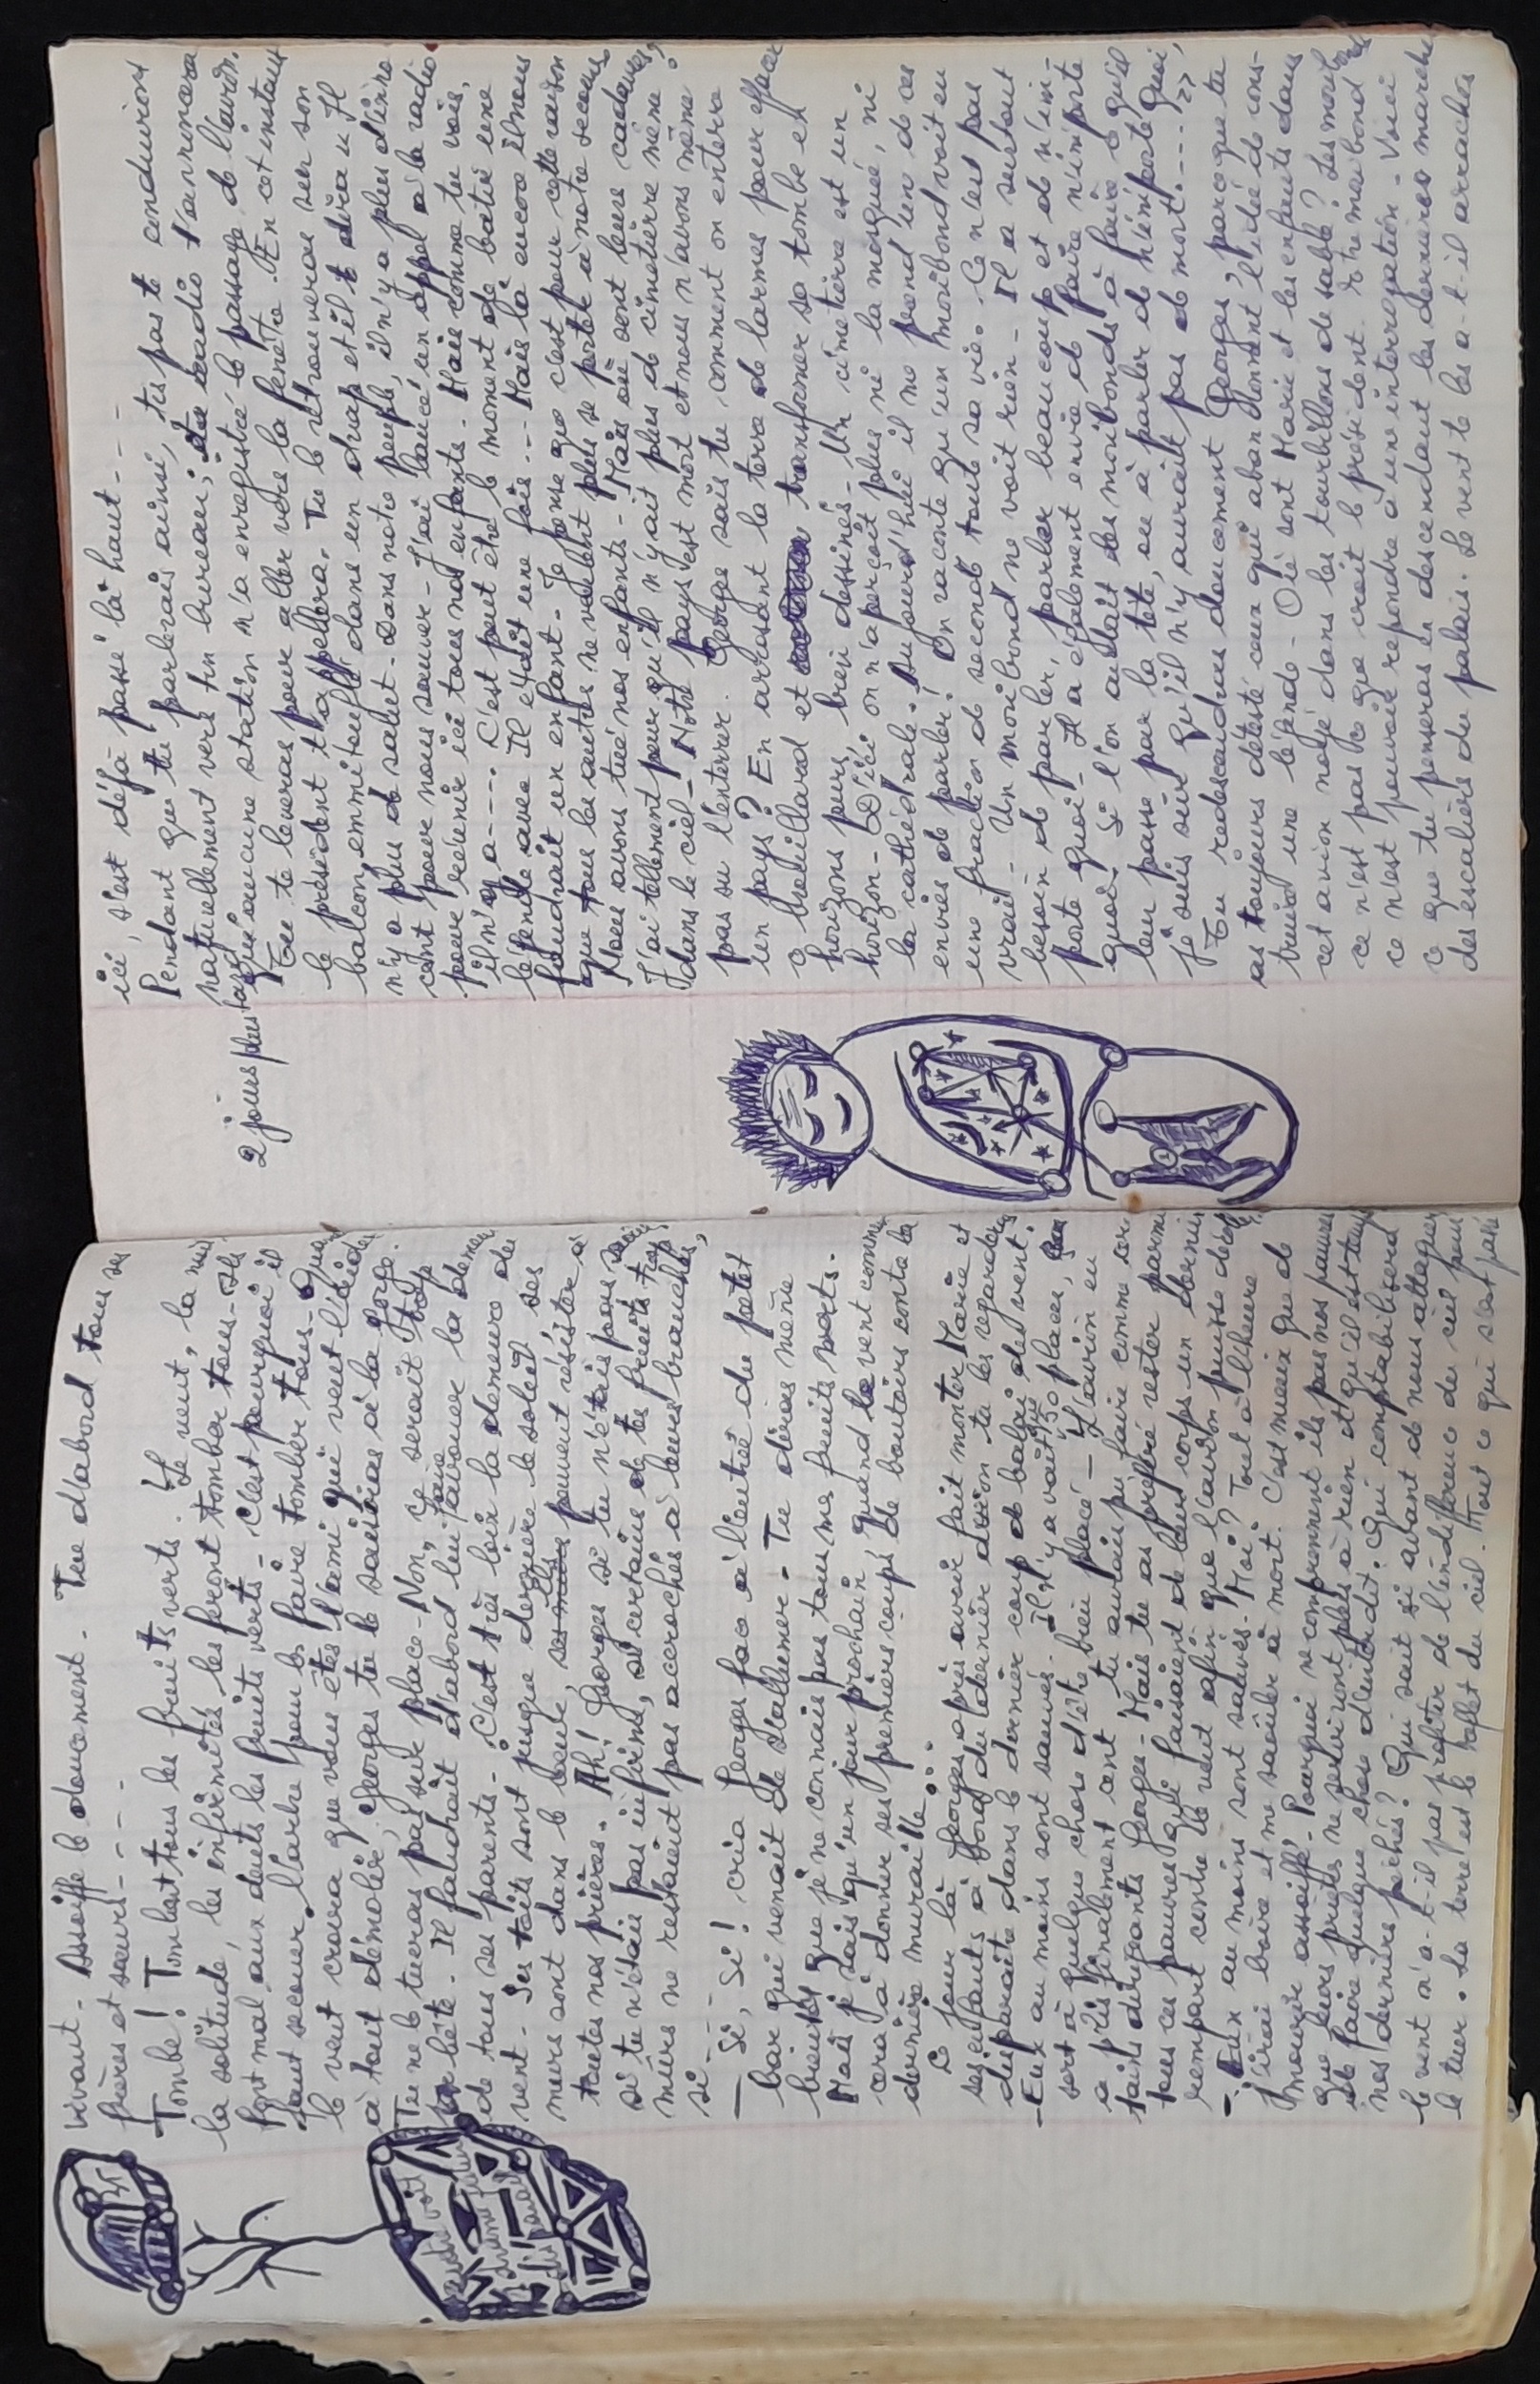 vivant. Assoiffe le doucement. Tue d'abord tous ses
frères et sœurs - - - -
- Tombe ! Tombent tous les fruits verts. Le vent, la nuit
la solitude, les infirmités les feront tomber tous. Ils
font mal aux dents les fruits verts. C'est pourquoi il
faut secouer l'arbre pour les faire tomber tous. Quand
le vent croira que vous êtes l'ami qui veut l'aider
à tout démolir, Georges tu le saisiras à la gorge.
Tu ne le tueras pas sur place. Non, ce serait trop
bête. Il faudrait d'abord lui faire avouer la demeure
de tous ses parents. C'est très loin la demeure du
vent. Ses toits sont jusque derrière le soleil ses
murs sont dans le boue, ils peuvent résister à
toutes nos prières. Ah! Georges si tu n'étais pas
si tu n'étais pas infirme, si certains de tes fruits trop
mûrs ne restaient pas accrochés à leurs branches,
si - - -
- Si, si ! cria Georges face à l'entrée du petit
bar qui venait de s'allumer. Tu diras même
bientôt que je ne connais pas tous mes fruits morts.
Mais je sais qu'un jour prochain quand le vent commen
cera à donner ses premiers coups de boutoirs contre la
dernière muraille...
Ce jour là Georges, après avoir fait monter Marie et
ses enfants à bord du dernier avion tu les regarderas
disparaître dans le dernier coup de balai du vent.
- Eux au moins sont sauvés. Il n'y avait que 50 places, ça
sert à quelque chose d'être bien placé - L'avion en
a pris finalement cent et tu aurais pu faire comme cer
tains dirigeants Georges. Mais tu as préféré rester parmi
tous ces pauvres qui faisaient de leur corps un dernier
rempart contre le vent afin que l'avion puisse décoller.
- Eux au moins sont sauvés. Moi ? Tout à l'heure
j'irai boire et me saoûler à mort. C'est mieux que de
mourir assoiffé. Pourquoi ne comprennent ils pas nos pauvres
que leurs prières ne serviront plus à rien et qu'il est temps
de faire quelque chose d'inter­dit. Qui comptabilisera
nos derniers péchés ? Qui sait si avant de nous attaquer
le vent n'a-t-il pas profité de l'indifférence du ciel pour
le tuer. La terre est le reflet du ciel. Tout ce qui s'est passé
ici, s'est déjà passé là haut - - -
Pendant que tu parlerais ainsi, tes pas te conduiront
naturellement vers ton bureau ; ta radio t'annoncera
2 jours plus tard qu'aucune station n'a enregistré le passage de l'avion.
Tu te lèveras pour aller vers la fenêtre. En cet instant
le président t'appellera. Tu le retrouveras sur son
balcon, emmitouflé dans un drap et il te dira « Il
n'y a plus de salut. Dans notre peuple, il n'y a plus d'entre
cent pour nous sauver. J'ai lancé un appel à la radio
pour réunir ici tous nos enfants. Mais comme tu vois,
il n'y a - - - - C'est peut être le moment de bâtir une
légende avec. Il était une fois - - - Mais là encore il nous
faudrait un enfant. Je pense que c'est pour cette raison
que tous les autres ne veulent plus se porter à notre secours
Nous avons tué nos enfants. Mais où sont leurs cadavres ?
J'ai tellement peur qu'il n'y ait plus de cimetière même
dans le ciel. Notre pays est mort et nous n'avons même
pas su l'enterrer. Georges sais tu comment on enterre
un pays ? En arrosant la terre de larmes pour effacer
ce brouillard et transformer sa tombe en
horizons purs, bien dessinés. Un cimetière est un
horizon. D'ici on n'aperçoit plus ni la mosquée, ni
la cathédrale. Aujourd'hui il me prend un de ces
envies de parler ! On raconte qu'un moribond voit en
une fraction de seconde toute sa vie. Ce n'est pas
vrai. Un moribond ne voit rien. Il a surtout
besoin de parler, parler beaucoup et de n'im-
porte quoi. Il a également envie de faire n'importe
quoi ! Si l'on aidait les moribonds à faire ce qu'il
leur passe par la tête, ou à parler de n'importe quoi,
je suis sûr qu'il n'y aurait pas de mort. - - - »
Tu redescendras doucement Georges, parce que tu
as toujours détesté ceux qui abandonnent l'idée de cons-
truire une légende. Où sont Marie et les enfants dans
cet avion noyé dans les tourbillons de sable ? Les morts
ce n'est pas ce que croit le président. Etre moribond
ce n'est pouvoir répondre à une interrogation. Voici
ce que tu penseras en descendant les dernières marches
des escaliers du palais. Le vent te les a-t-il arrachés